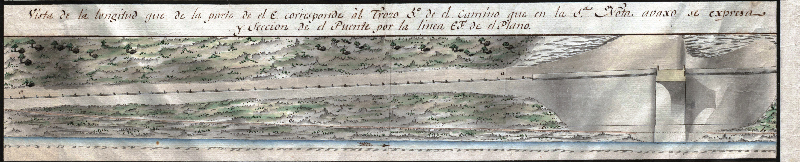 Vista de la longitud que de la parte de el E. corresponde al Trozo 3.º de el Camino que en la 6.ª Nota avaxo se expresa
y Seccion de el Puente por la linea EF. de el Plano.